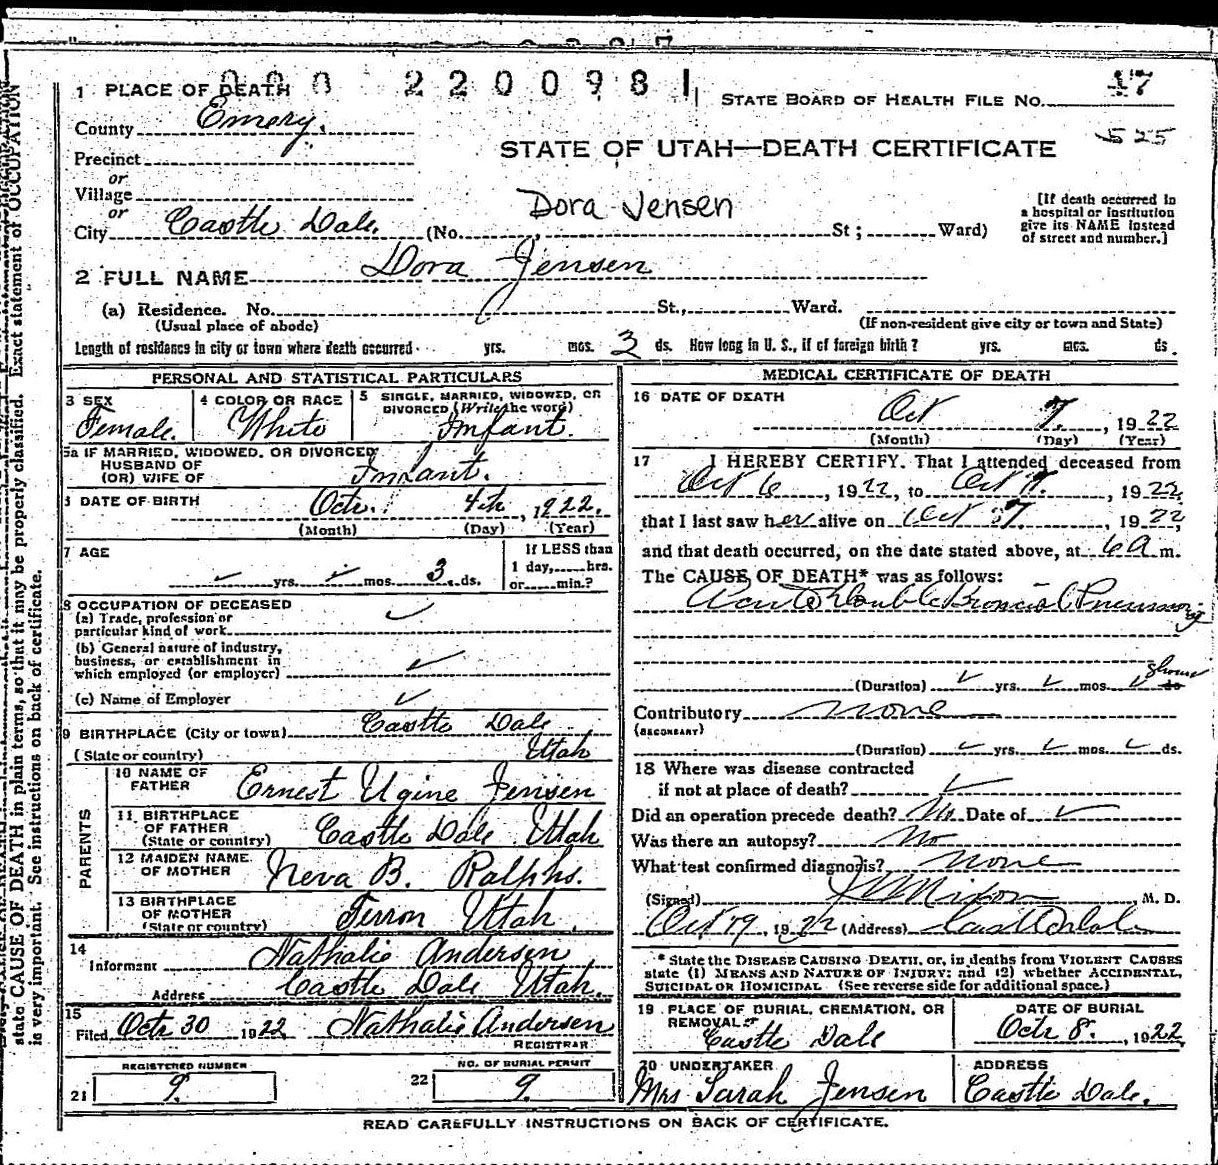 000 2200981
1 PLACE OF DEATH
STATE BOARD OF HEALTH FILE NO. 17
County Emery.
525
STATE OF UTAH—DEATH CERTIFICATE
Precinct
or
Village
or
Dora Jensen
[If death occurred in a hospital or institution give its NAME instead of street and number.]
City Castle Dale. (No. St; Ward)
2 FULL NAME Dora Jensen
(a) Residence. No. St., Ward.
(Usual place of abode) (If non-resident give city or town and State)
Length of residence in city or town where death occurred yrs. mos. 3 ds. How long in U. S., if of foreign birth? yrs. mos. ds.
PERSONAL AND STATISTICAL PARTICULARS
3 SEX Female.
4 COLOR OR RACE White
5 SINGLE, MARRIED, WIDOWED, OR DIVORCED (Write the word) Infant.
5a IF MARRIED, WIDOWED, OR DIVORCED
HUSBAND OF
(OR) WIFE OF Infant.
6 DATE OF BIRTH Oct. 4th, 1922.
(Month) (Day) (Year)
7 AGE
yrs. mos. 3 ds.
If LESS than
1 day, hrs.
or min.?
8 OCCUPATION OF DECEASED
(a) Trade, profession or
particular kind of work
(b) General nature of industry,
business, or establishment in
which employed (or employer)
(c) Name of Employer
9 BIRTHPLACE (City or town) Castle Dale
(State or country) Utah
PARENTS
10 NAME OF FATHER Ernest Ugine Jensen
11 BIRTHPLACE OF FATHER (State or country) Castle Dale Utah
12 MAIDEN NAME OF MOTHER Neva B. Ralphs.
13 BIRTHPLACE OF MOTHER (State or country) Ferron Utah.
14
Informant Nathalie Andersen
Address Castle Dale Utah.
15
Filed Oct. 30 1922 Nathalie Andersen
REGISTRAR
REGISTERED NUMBER
21 9.
NO. OF BURIAL PERMIT
22 9.
MEDICAL CERTIFICATE OF DEATH
16 DATE OF DEATH
Oct 7, 1922
(Month) (Day) (Year)
17 I HEREBY CERTIFY, That I attended deceased from
Oct 6, 1922, to Oct 7, 1922,
that I last saw her alive on Oct 7, 1922,
and that death occurred, on the date stated above, at 6 a m.
The CAUSE OF DEATH* was as follows:
Acute Double Broncial Pneumonia
(Duration) yrs. mos. ds.
Contributory none
(SECONDARY)
(Duration) yrs. mos. ds.
18 Where was disease contracted
if not at place of death?
Did an operation precede death? No Date of
Was there an autopsy? No
What test confirmed diagnosis? none
(Signed) Nixon, M. D.
Oct 19, 1922 (Address) Castle Dale
* State the DISEASE CAUSING DEATH, or, in deaths from VIOLENT CAUSES
state (1) MEANS AND NATURE OF INJURY; and (2) whether ACCIDENTAL,
SUICIDAL OR HOMICIDAL (See reverse side for additional space.)
19 PLACE OF BURIAL, CREMATION, OR REMOVAL Castle Dale
DATE OF BURIAL Oct. 8, 1922,
20 UNDERTAKER Mrs Sarah Jensen
ADDRESS Castle Dale.
READ CAREFULLY INSTRUCTIONS ON BACK OF CERTIFICATE.
state CAUSE OF DEATH in plain terms, so that it may be properly classified. Exact statement of OCCUPATION
is very important. See instructions on back of certificate.